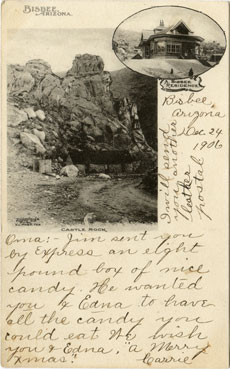 BISBEE,
ARIZONA.
A BISBEE
RESIDENCE
Bisbee,
Arizona
Dec. 24,
1906
I will send
you another
leather
postal
CASTLE ROCK,
Oma:- Jim sent you
by Express an eight
pound box of nice
candy. He wanted
you & Edna to have
all the candy you
could eat. We wish
you & Edna, "A Merry
Xmas".
Carrie